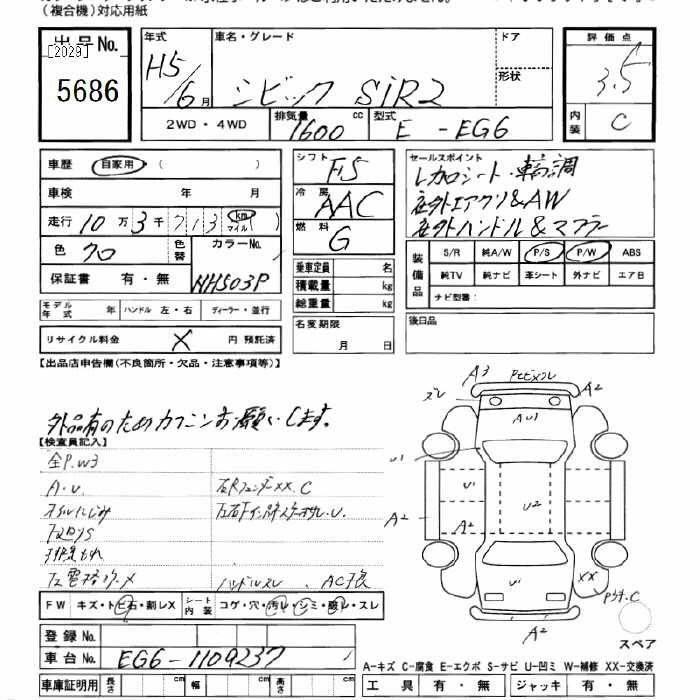 （複合機）対応用紙
出品No. 年式 車名・グレード ドア 評価点
[2029] H5 シビック SiR2 形状 3.5
5686 6月
2WD・4WD 排気量 1600cc 型式 E-EG6 内装 C
車歴 自家用 ( )
車検 年 月
走行 10万3千713 km マイル
色 クロ 色替 カラーNo. NH503P
保証書 有・無
シフト F5
冷房 AAC
燃料 G
セールスポイント
レカロシート・車高調
社外エアクリ&AW
社外ハンドル&マフラー
装備品 S/R 純A/W P/S P/W ABS
純TV 純ナビ 革シート 外ナビ エアB
ナビ型番：
乗車定員 名
積載量 kg
総重量 kg
モデル年式 年 ハンドル 左・右 ディーラー・並行
名変期限 月 日
後日品
リサイクル料金 × 円 預託済
【出品店申告欄（不良箇所・欠品・注意事項等）】
外品有のためカクニンお願いします。
【検査員記入】
全P.W3
A・U
オイルにじみ
下回りS
排気もれ
XX.C
ハンドルスレ、AC不良
A3 A2
ズレ
AU1
U1
U1 U2
A2 A2 A2
U1 XX
C
A2
FW キズ・トビ石・割レX シート内装 コゲ・穴・汚レ・シミ・破レ・スレ
スペア
登録No.
車台No. EG6-1109237
A-キズ C-腐食 E-エクボ S-サビ U-凹ミ W-補修 XX-交換済
車庫証明用 長さ cm 幅 cm 高さ cm 工具 有・無 ジャッキ 有・無